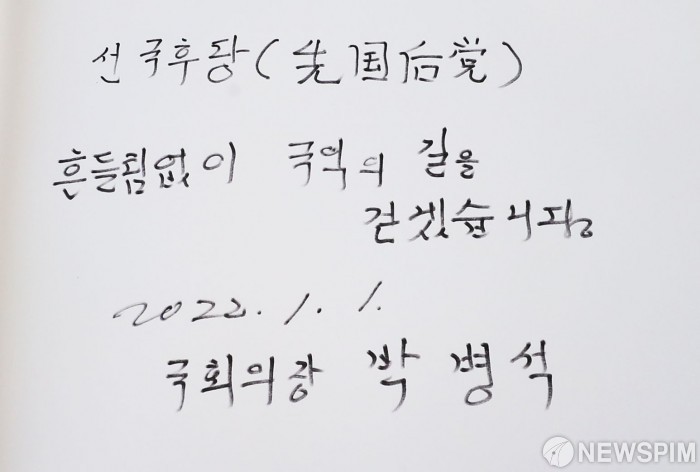 선국후당(先国后党)
흔들림없이 국익의 길을
걷겠습니다.
2022. 1. 1.
국회의장 박병석
NEWSPIM